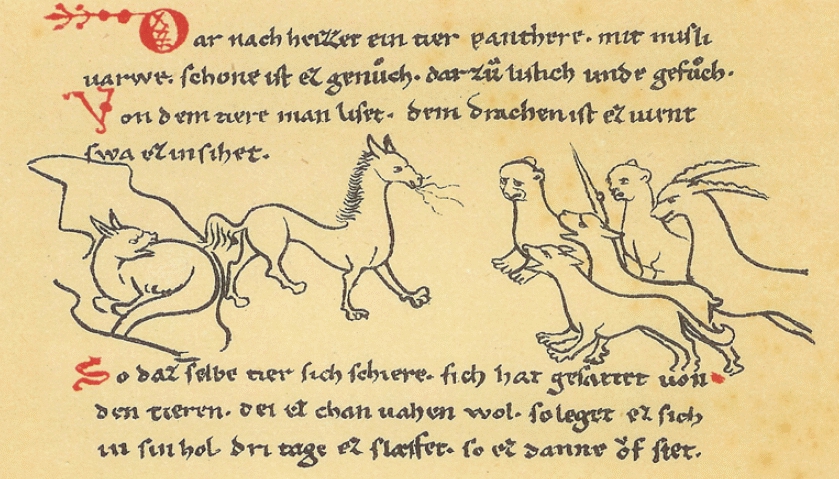 Dar nach heizzet ein tier panthere. mit misli
uarwe. schone ist ez genůch. dar zů listich unde gefůch.
Von dem tiere man liset. dem drachen ist ez uient
swa ez in sihet.
So daz selbe tier sich schiere. sich hat gesattet uon
den tieren. dei ez chan uahen wol. so leget ez sich
in sin hol. dri tage ez slæffet. so ez danne ůf stet.